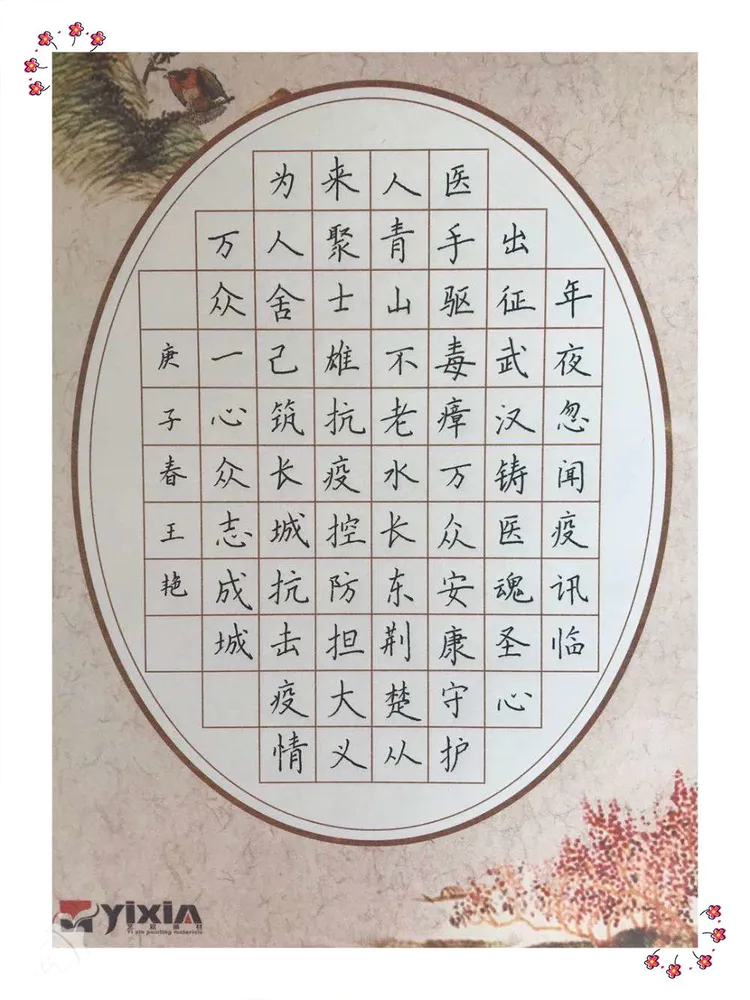 年夜忽闻疫讯临
出征武汉铸医魂圣心
医手驱毒瘴万众安康守护
人青山不老水长东荆楚从
来聚士雄抗疫控防担大义
为人舍己筑长城抗击疫情
万众一心众志成城
庚子春王艳
YIXIN
Yi xin painting materials